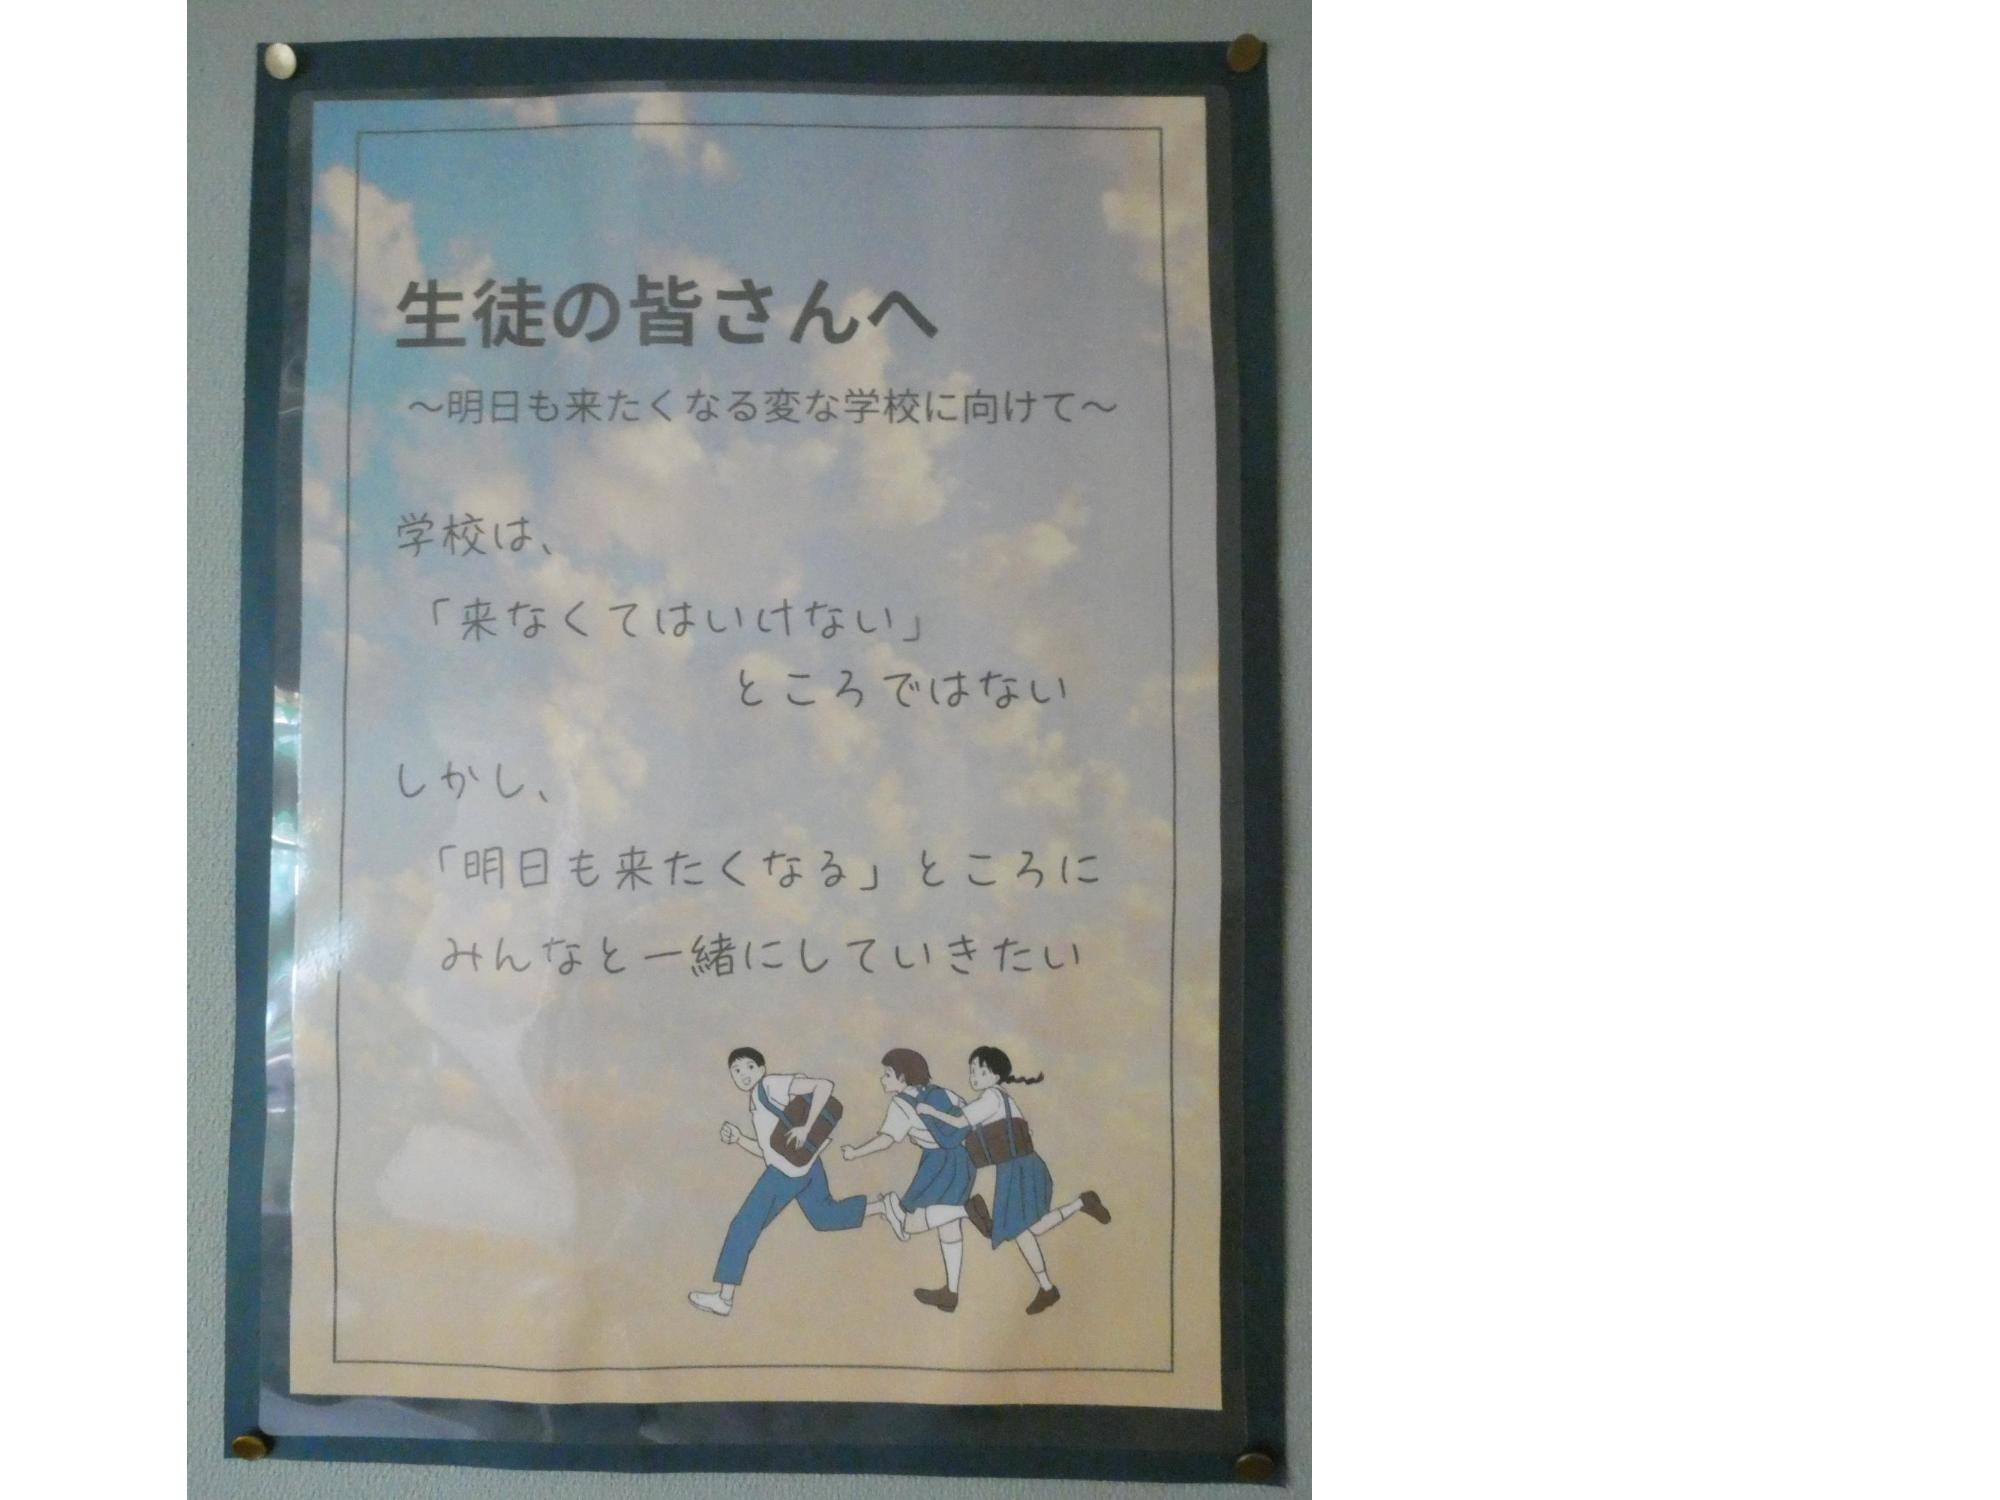 生徒の皆さんへ
～明日も来たくなる変な学校に向けて～
学校は、
「来なくてはいけない」
ところではない
しかし、
「明日も来たくなる」ところに
みんなと一緒にしていきたい